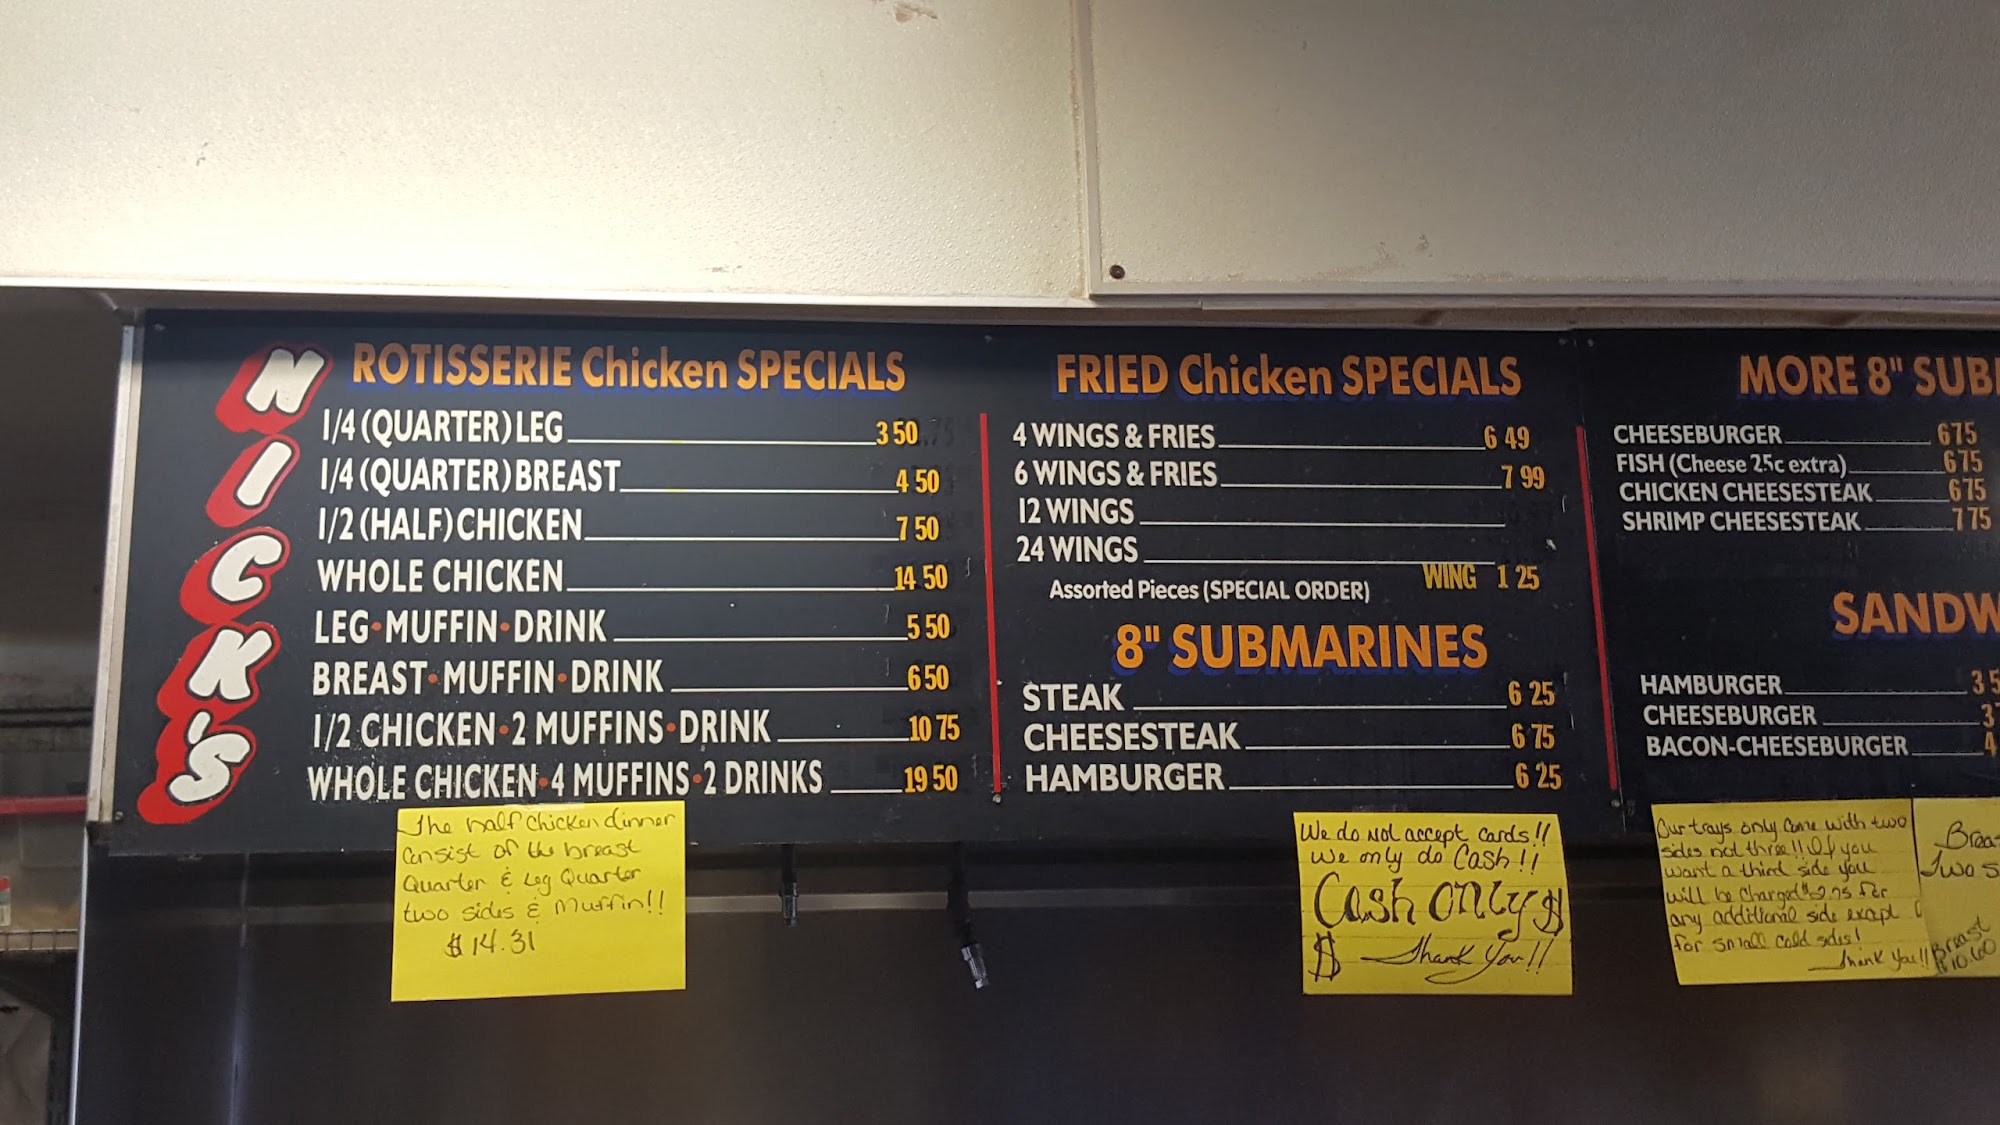 NICK'S
ROTISSERIE Chicken SPECIALS
1/4 (QUARTER) LEG 3 50
1/4 (QUARTER) BREAST 4 50
1/2 (HALF) CHICKEN 7 50
WHOLE CHICKEN 14 50
LEG • MUFFIN • DRINK 5 50
BREAST • MUFFIN • DRINK 6 50
1/2 CHICKEN • 2 MUFFINS • DRINK 10 75
WHOLE CHICKEN • 4 MUFFINS • 2 DRINKS 19 50
The half chicken dinner
consist of the breast
Quarter & Leg Quarter
two sides & Muffin!!
$14.31
FRIED Chicken SPECIALS
4 WINGS & FRIES 6 49
6 WINGS & FRIES 7 99
12 WINGS
24 WINGS
WING 1 25
Assorted Pieces (SPECIAL ORDER)
8" SUBMARINES
STEAK 6 25
CHEESESTEAK 6 75
HAMBURGER 6 25
We do not accept cards!!
We only do Cash!!
Cash ONLY $
$ Thank You!!
MORE 8" SUB
CHEESEBURGER 6 75
FISH (Cheese 25c extra) 6 75
CHICKEN CHEESESTEAK 6 75
SHRIMP CHEESESTEAK 7 75
SANDW
HAMBURGER 3 5
CHEESEBURGER 3
BACON-CHEESEBURGER 4
Our trays only come with two
sides not three!! If you
want a third side you
will be charged $2.75 for
any additional side exept
for small cold sides!
Thank You!!
Breas
Two s
Breast
$10.60